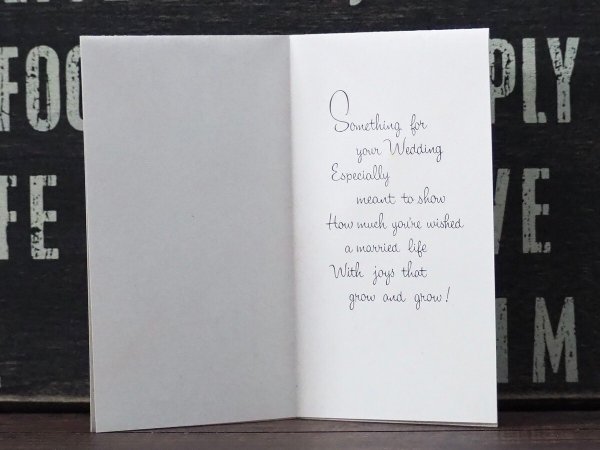 Something for
your Wedding
Especially
meant to show
How much you're wished
a married life
With joys that
grow and grow!
PLY
M